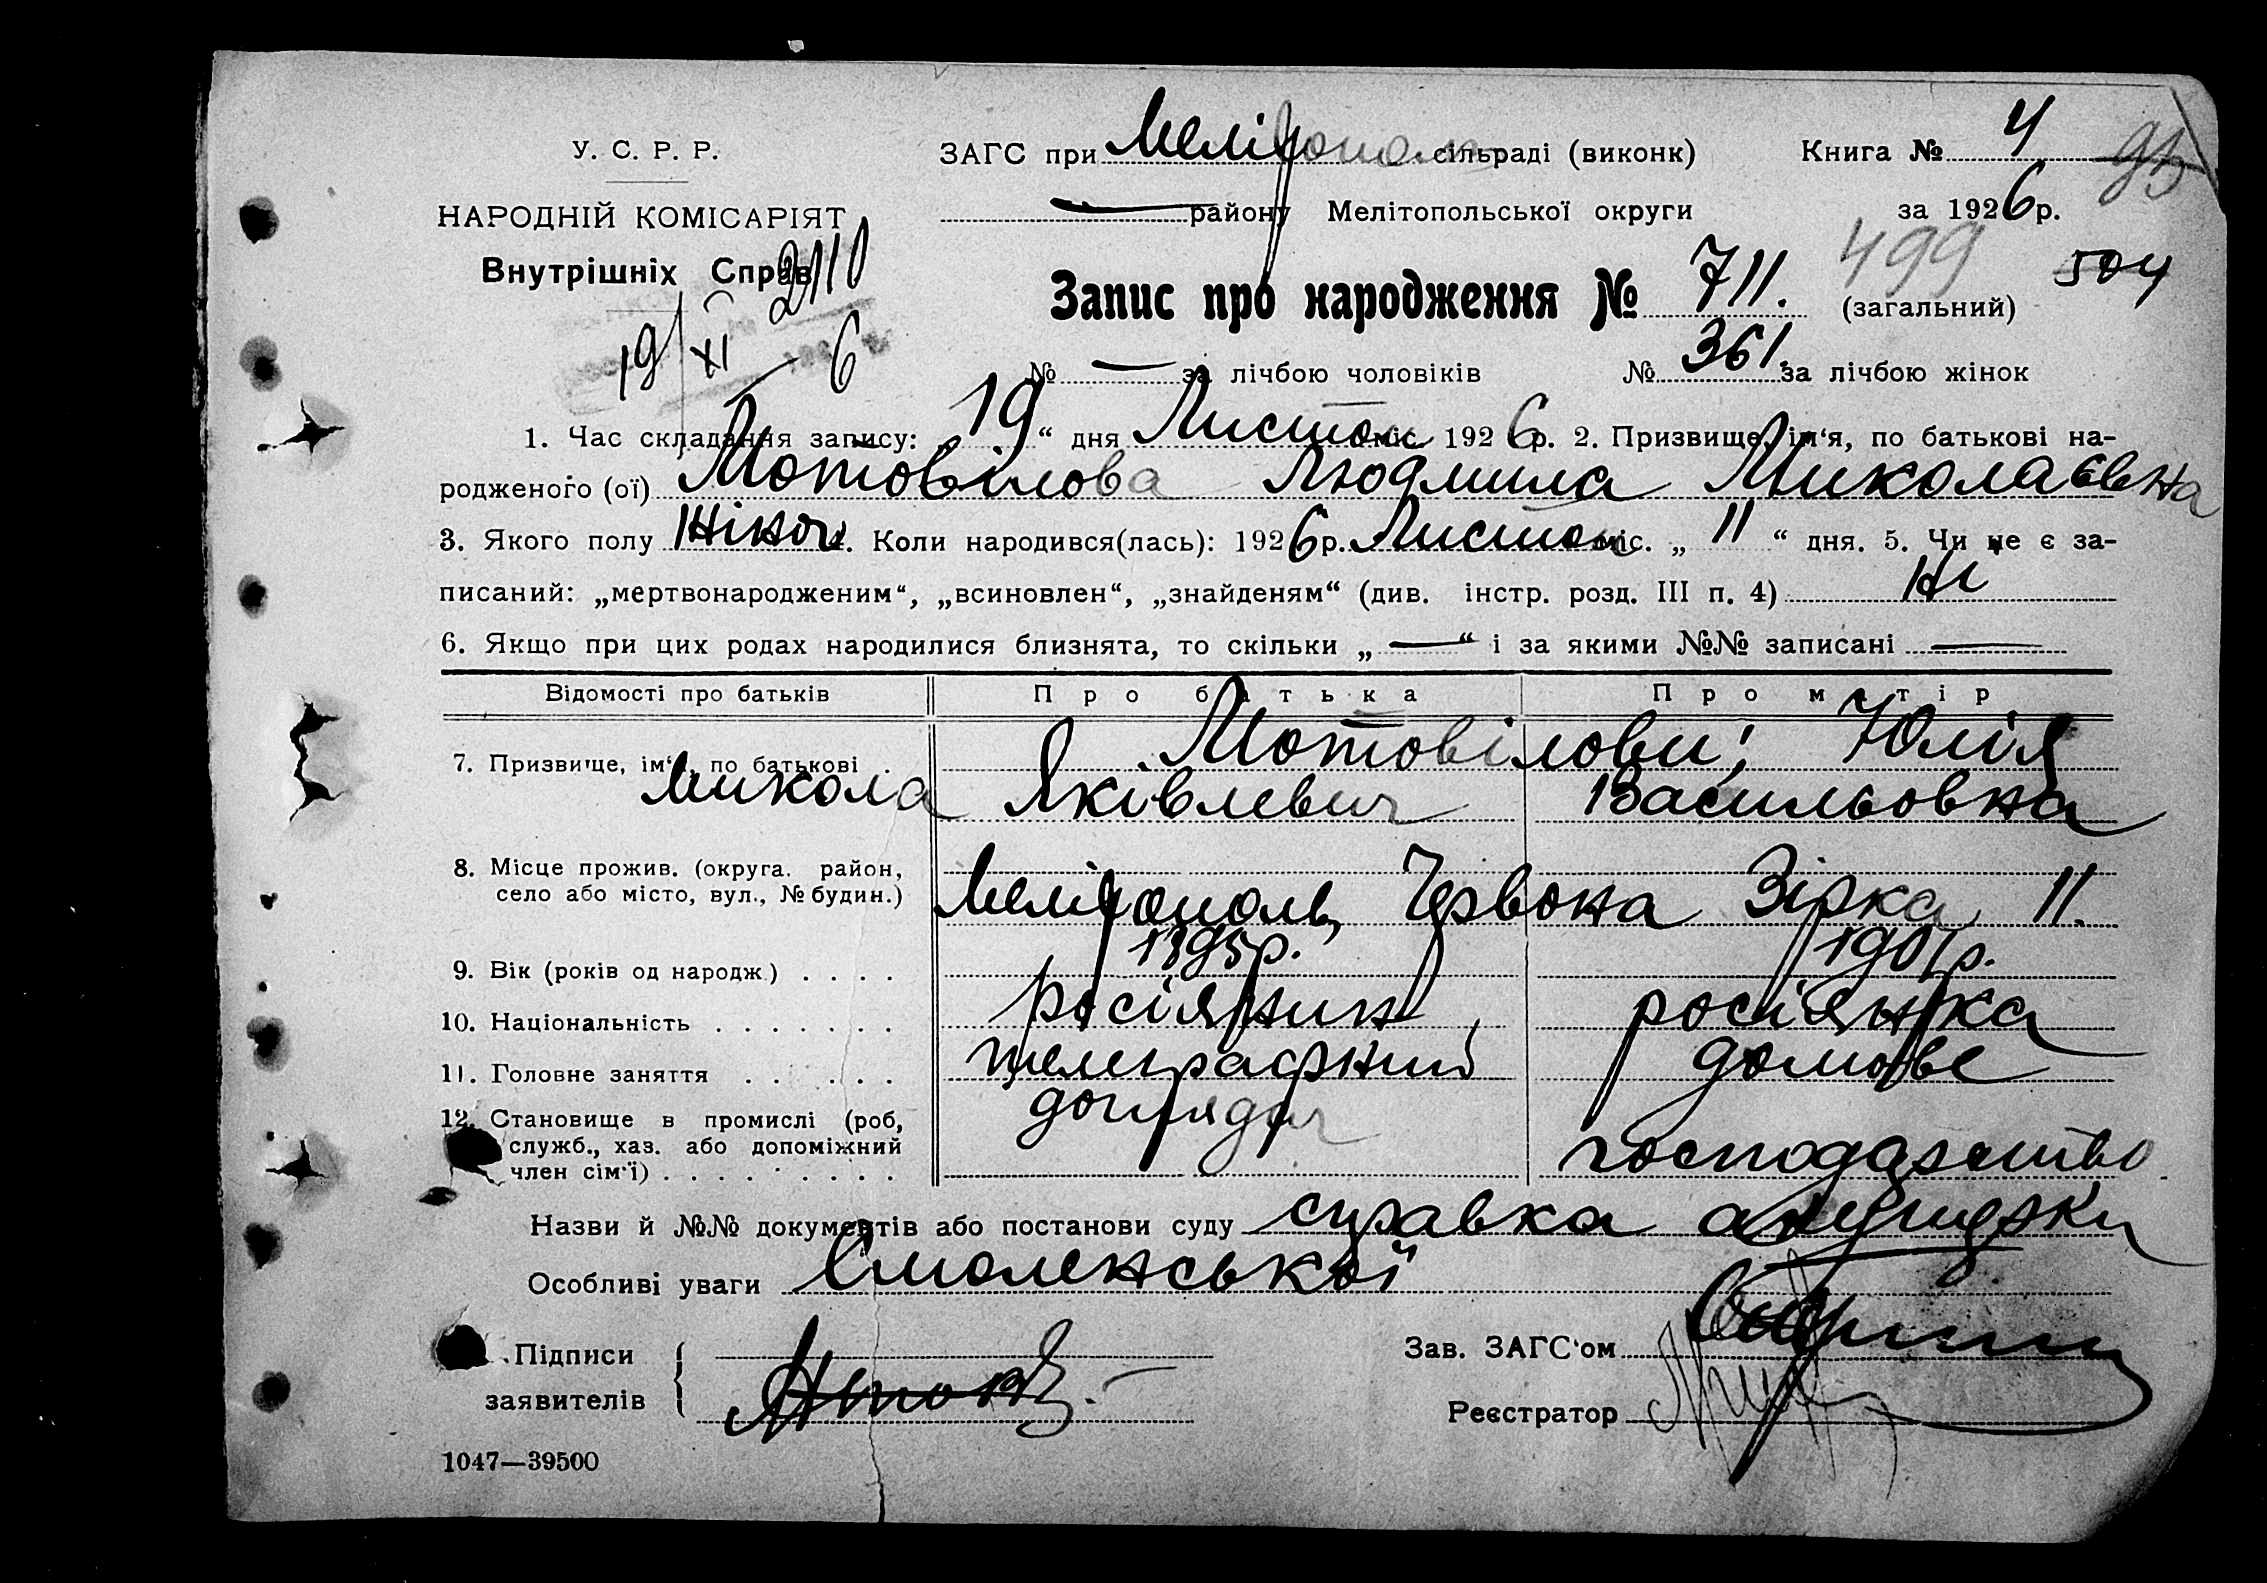 У. С. Р. Р.
НАРОДНІЙ КОМІСАРІЯТ
Внутрішніх Справ
2110
19/XI — 6
ЗАГС при Мелітополь сільраді (виконк) Книга № 4
— району Мелітопольської округи за 1926 р.
499 504
Запис про народження № 711. (загальний)
№ — за лічбою чоловіків № 361 за лічбою жінок
1. Час складання запису: „19“ дня Листоп міс. 1926 р. 2. Призвище, ім‘я, по батькові на-
родженого (ої) Мотовілова Людмила Миколаєвна
3. Якого полу Жіноч. 4. Коли народився(лась): 1926 р. Листоп міс. „11“ дня. 5. Чи не є за-
писаний: „мертвонародженим“, „всиновлен“, „знайденям“ (див. інстр. розд. III п. 4) Ні
6. Якщо при цих родах народилися близнята, то скільки „—“ і за якими №№ записані —
Відомості про батьків Про батька Про матір
7. Призвище, ім‘я, по батькові Мотовілови; Юлія
Микола Яківлевич Васильовна
8. Місце прожив. (округа. район,
село або місто, вул., № будин.) Мелітополь, Червона Зірка 11.
9. Вік (років од народж.) 1895 р. 1901 р.
10. Національність росіянин росіянка
11. Головне заняття телеграфний домове
12. Становище в промислі (роб,
служб., хаз. або допоміжний
член сім‘ї) доглядач господарство
Назви й №№ документів або постанови суду справка акушерки
Особливі уваги Смоленської
Підписи
заявителів
Зав. ЗАГС‘ом
Реєстратор
1047—39500